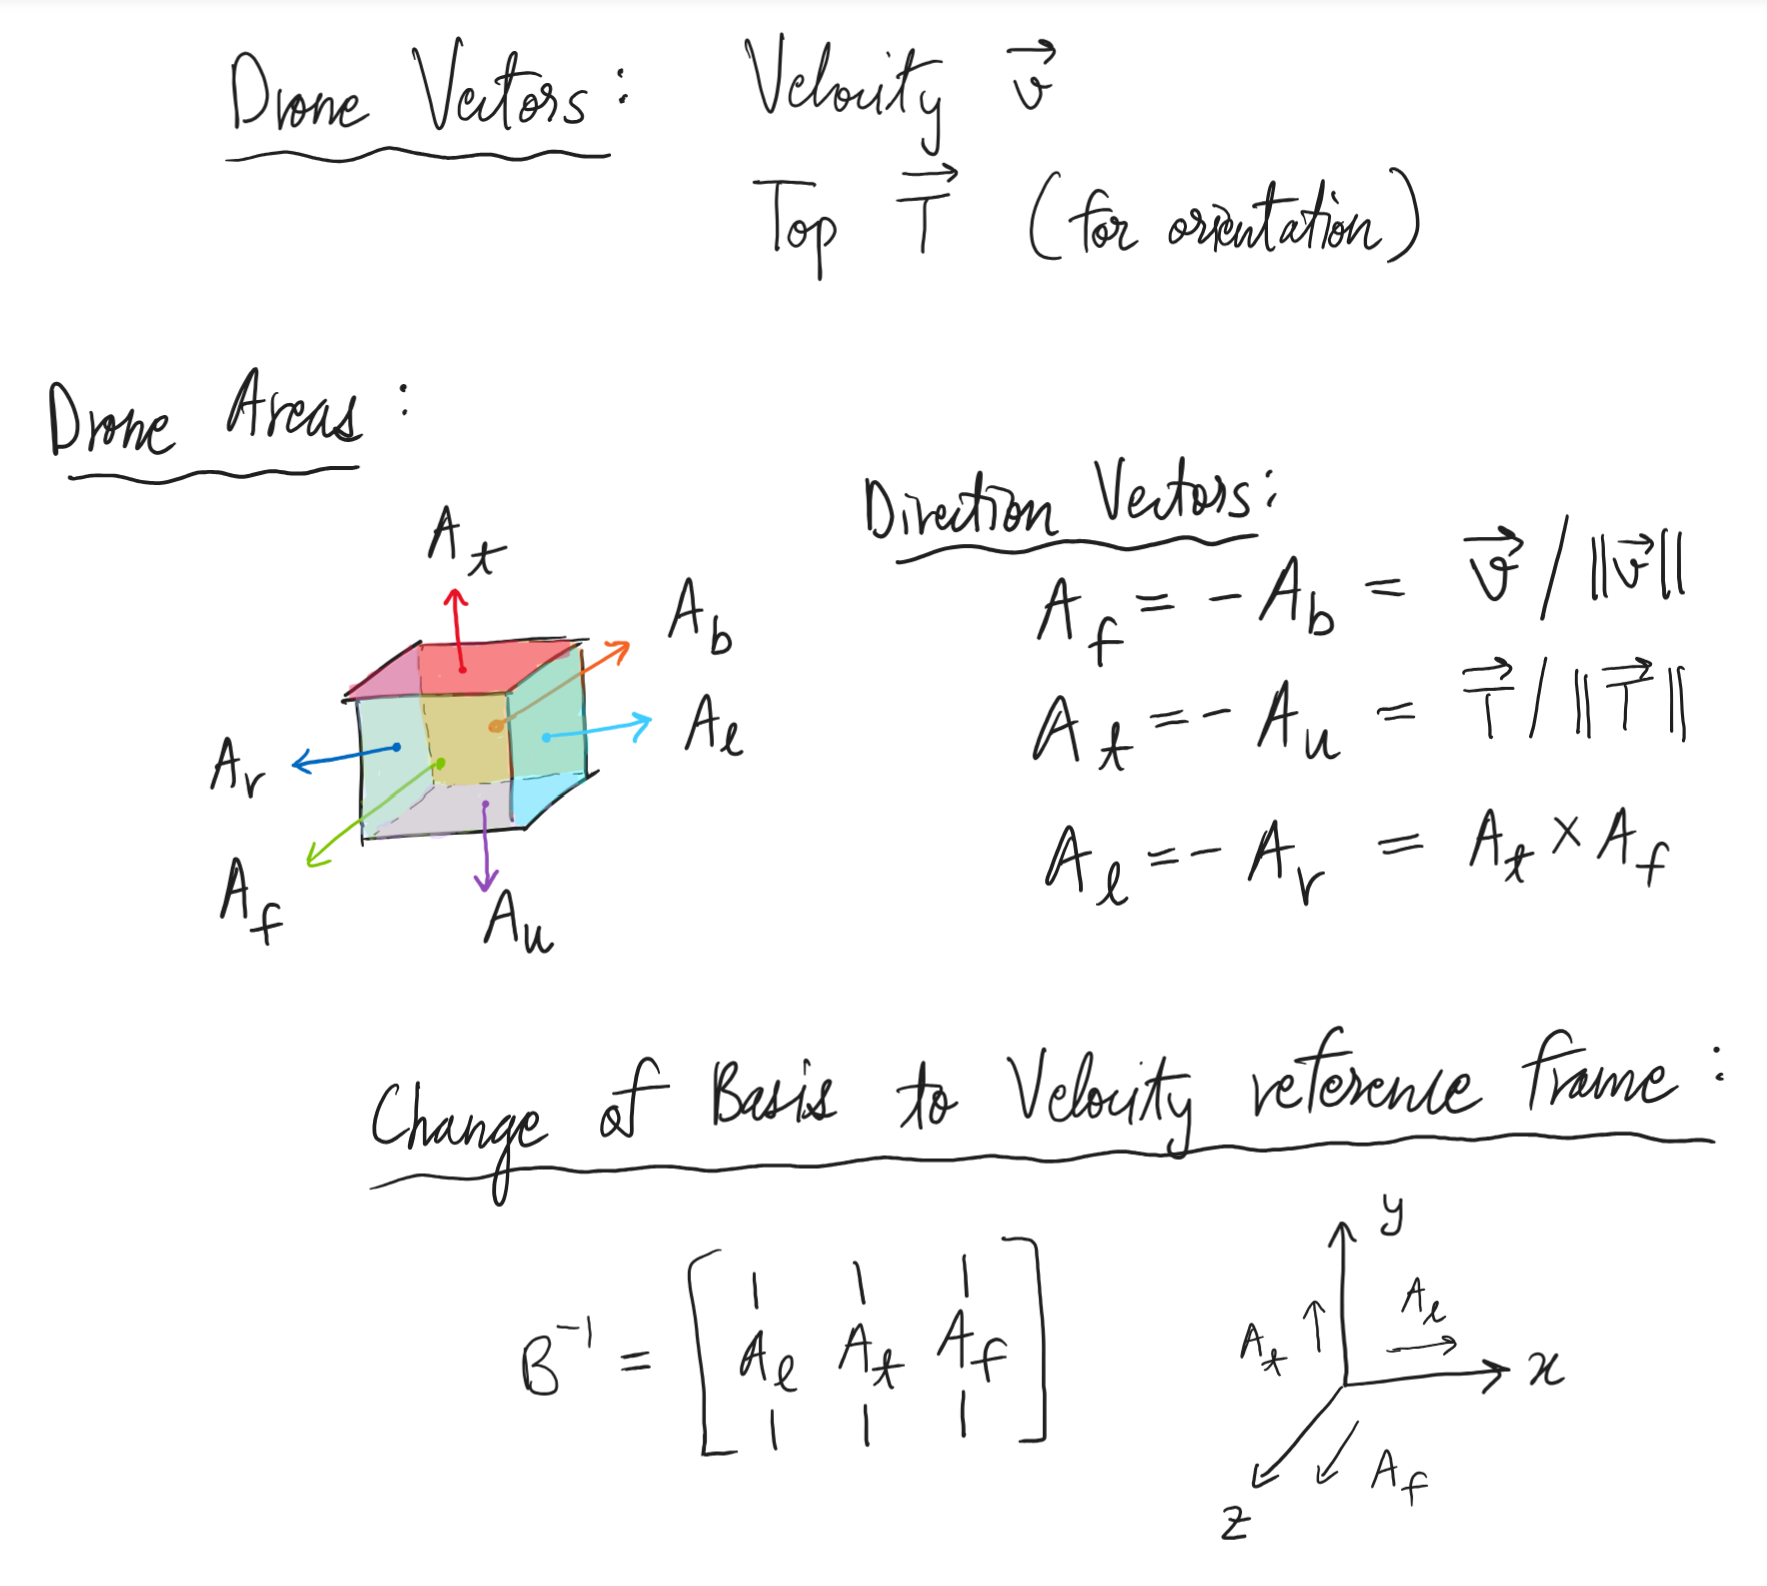 Drone Vectors : Velocity v⃗
Top T⃗ (for orientation)
Drone Areas :
Direction Vectors:
A_t
A_b
A_l
A_r
A_f
A_u
A_f = - A_b = v⃗ / ||v⃗||
A_t = - A_u = T⃗ / ||T⃗||
A_l = - A_r = A_t × A_f
Change of Basis to Velocity reference frame :
B⁻¹ = [ A_l A_t A_f ]
y
A_l
A_t
x
A_f
z